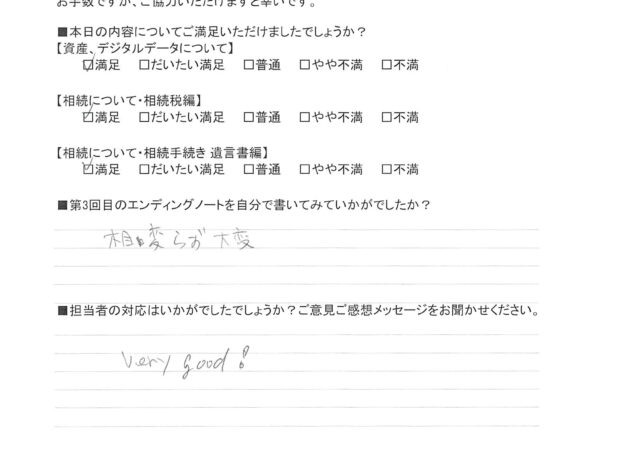 お手数ですが、ご協力いただけますと幸いです。
■本日の内容についてご満足いただけましたでしょうか？
【資産、デジタルデータについて】
☑満足 □だいたい満足 □普通 □やや不満 □不満
【相続について・相続税編】
☑満足 □だいたい満足 □普通 □やや不満 □不満
【相続について・相続手続き 遺言書編】
☑満足 □だいたい満足 □普通 □やや不満 □不満
■第3回目のエンディングノートを自分で書いてみていかがでしたか？
相変らず大変
■担当者の対応はいかがでしたでしょうか？ご意見ご感想メッセージをお聞かせください。
Very good!